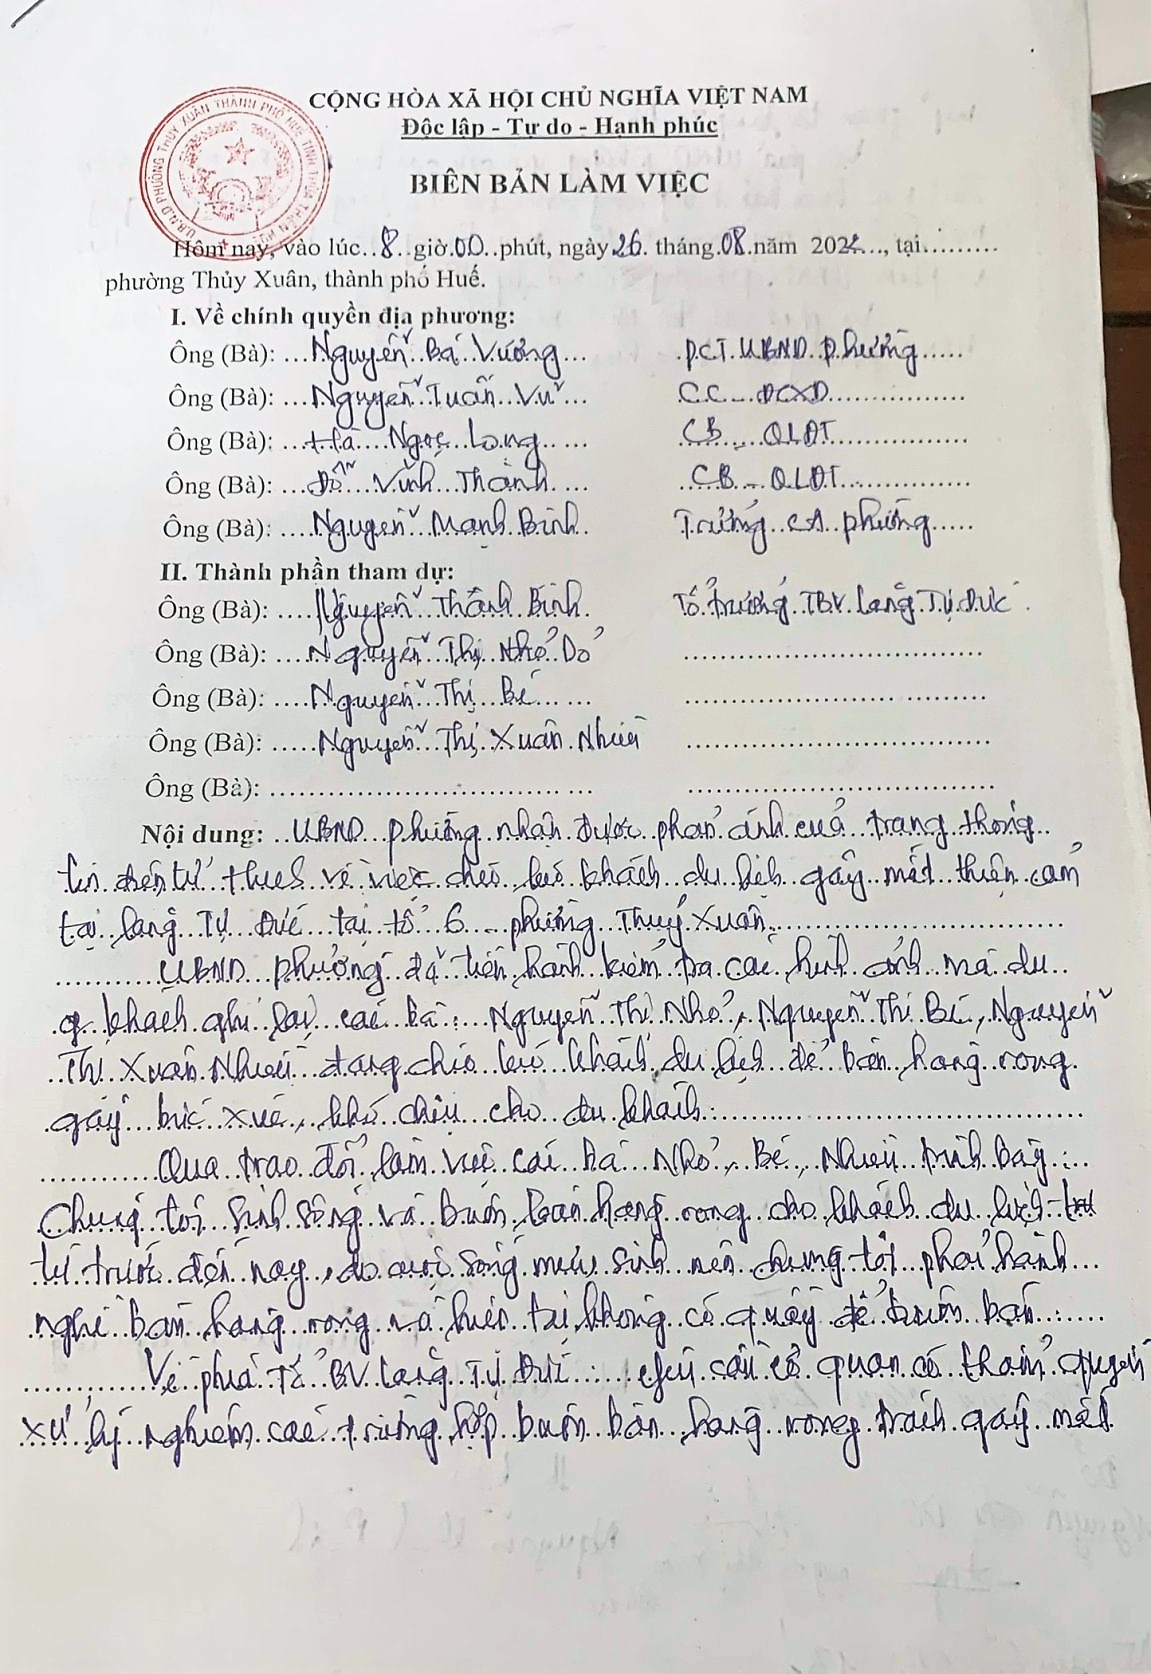 CỘNG HÒA XÃ HỘI CHỦ NGHĨA VIỆT NAM
Độc lập - Tự do - Hạnh phúc
U.B.N.D PHƯỜNG THỦY XUÂN THÀNH PHỐ HUẾ TỈNH THỪA THIÊN HUẾ
BIÊN BẢN LÀM VIỆC
Hôm nay, vào lúc..8..giờ.00..phút, ngày 26. tháng.08.năm 202..., tại.........
phường Thủy Xuân, thành phố Huế.
I. Về chính quyền địa phương:
Ông (Bà): ...Nguyễn Bá Vương... PCT UBND Phường.....
Ông (Bà): ...Nguyễn Tuấn Vũ... CC - ĐCXD...............
Ông (Bà): ...Hà Ngọc Long... CB - QLĐT...............
Ông (Bà): ...Đỗ Vĩnh Thành... CB - QLĐT...............
Ông (Bà): ...Nguyễn Mạnh Bình. Trưởng CA phường.....
II. Thành phần tham dự:
Ông (Bà): ...Nguyễn Thanh Bình. Tổ trưởng TBV Lăng Tự Đức.
Ông (Bà): ...Nguyễn Thị Nhỏ ...............
Ông (Bà): ...Nguyễn Thị Bé... ...............
Ông (Bà): ...Nguyễn Thị Xuân ...............
Ông (Bà): ............... ...............
Nội dung: ..UBND phường nhận được phản ánh của trang thông
tin điện tử HueS về việc chèo kéo khách du lịch gây mất thiện cảm
tại lăng Tự Đức tại tổ 6 phường Thuỷ Xuân...............
UBND phường đã tiến hành kiểm tra các hình ảnh mà du
khách ghi lại các bà: Nguyễn Thị Nhỏ, Nguyễn Thị Bé, Nguyễn
Thị Xuân đang chèo kéo khách du lịch để bán hàng rong
gây bức xúc, khó chịu cho du khách...............
Qua trao đổi làm việc các bà Nhỏ, Bé, trình bày:
Chúng tôi sinh sống và buôn bán hàng rong cho khách du lịch
từ trước đến nay, do cuộc sống mưu sinh nên chúng tôi phải hành
nghề bán hàng rong và hiện tại không có quầy để buôn bán......
Về phía Tổ BV Lăng Tự Đức: yêu cầu cơ quan có thẩm quyền
xử lý nghiêm các trường hợp buôn bán hàng rong tránh gây mất